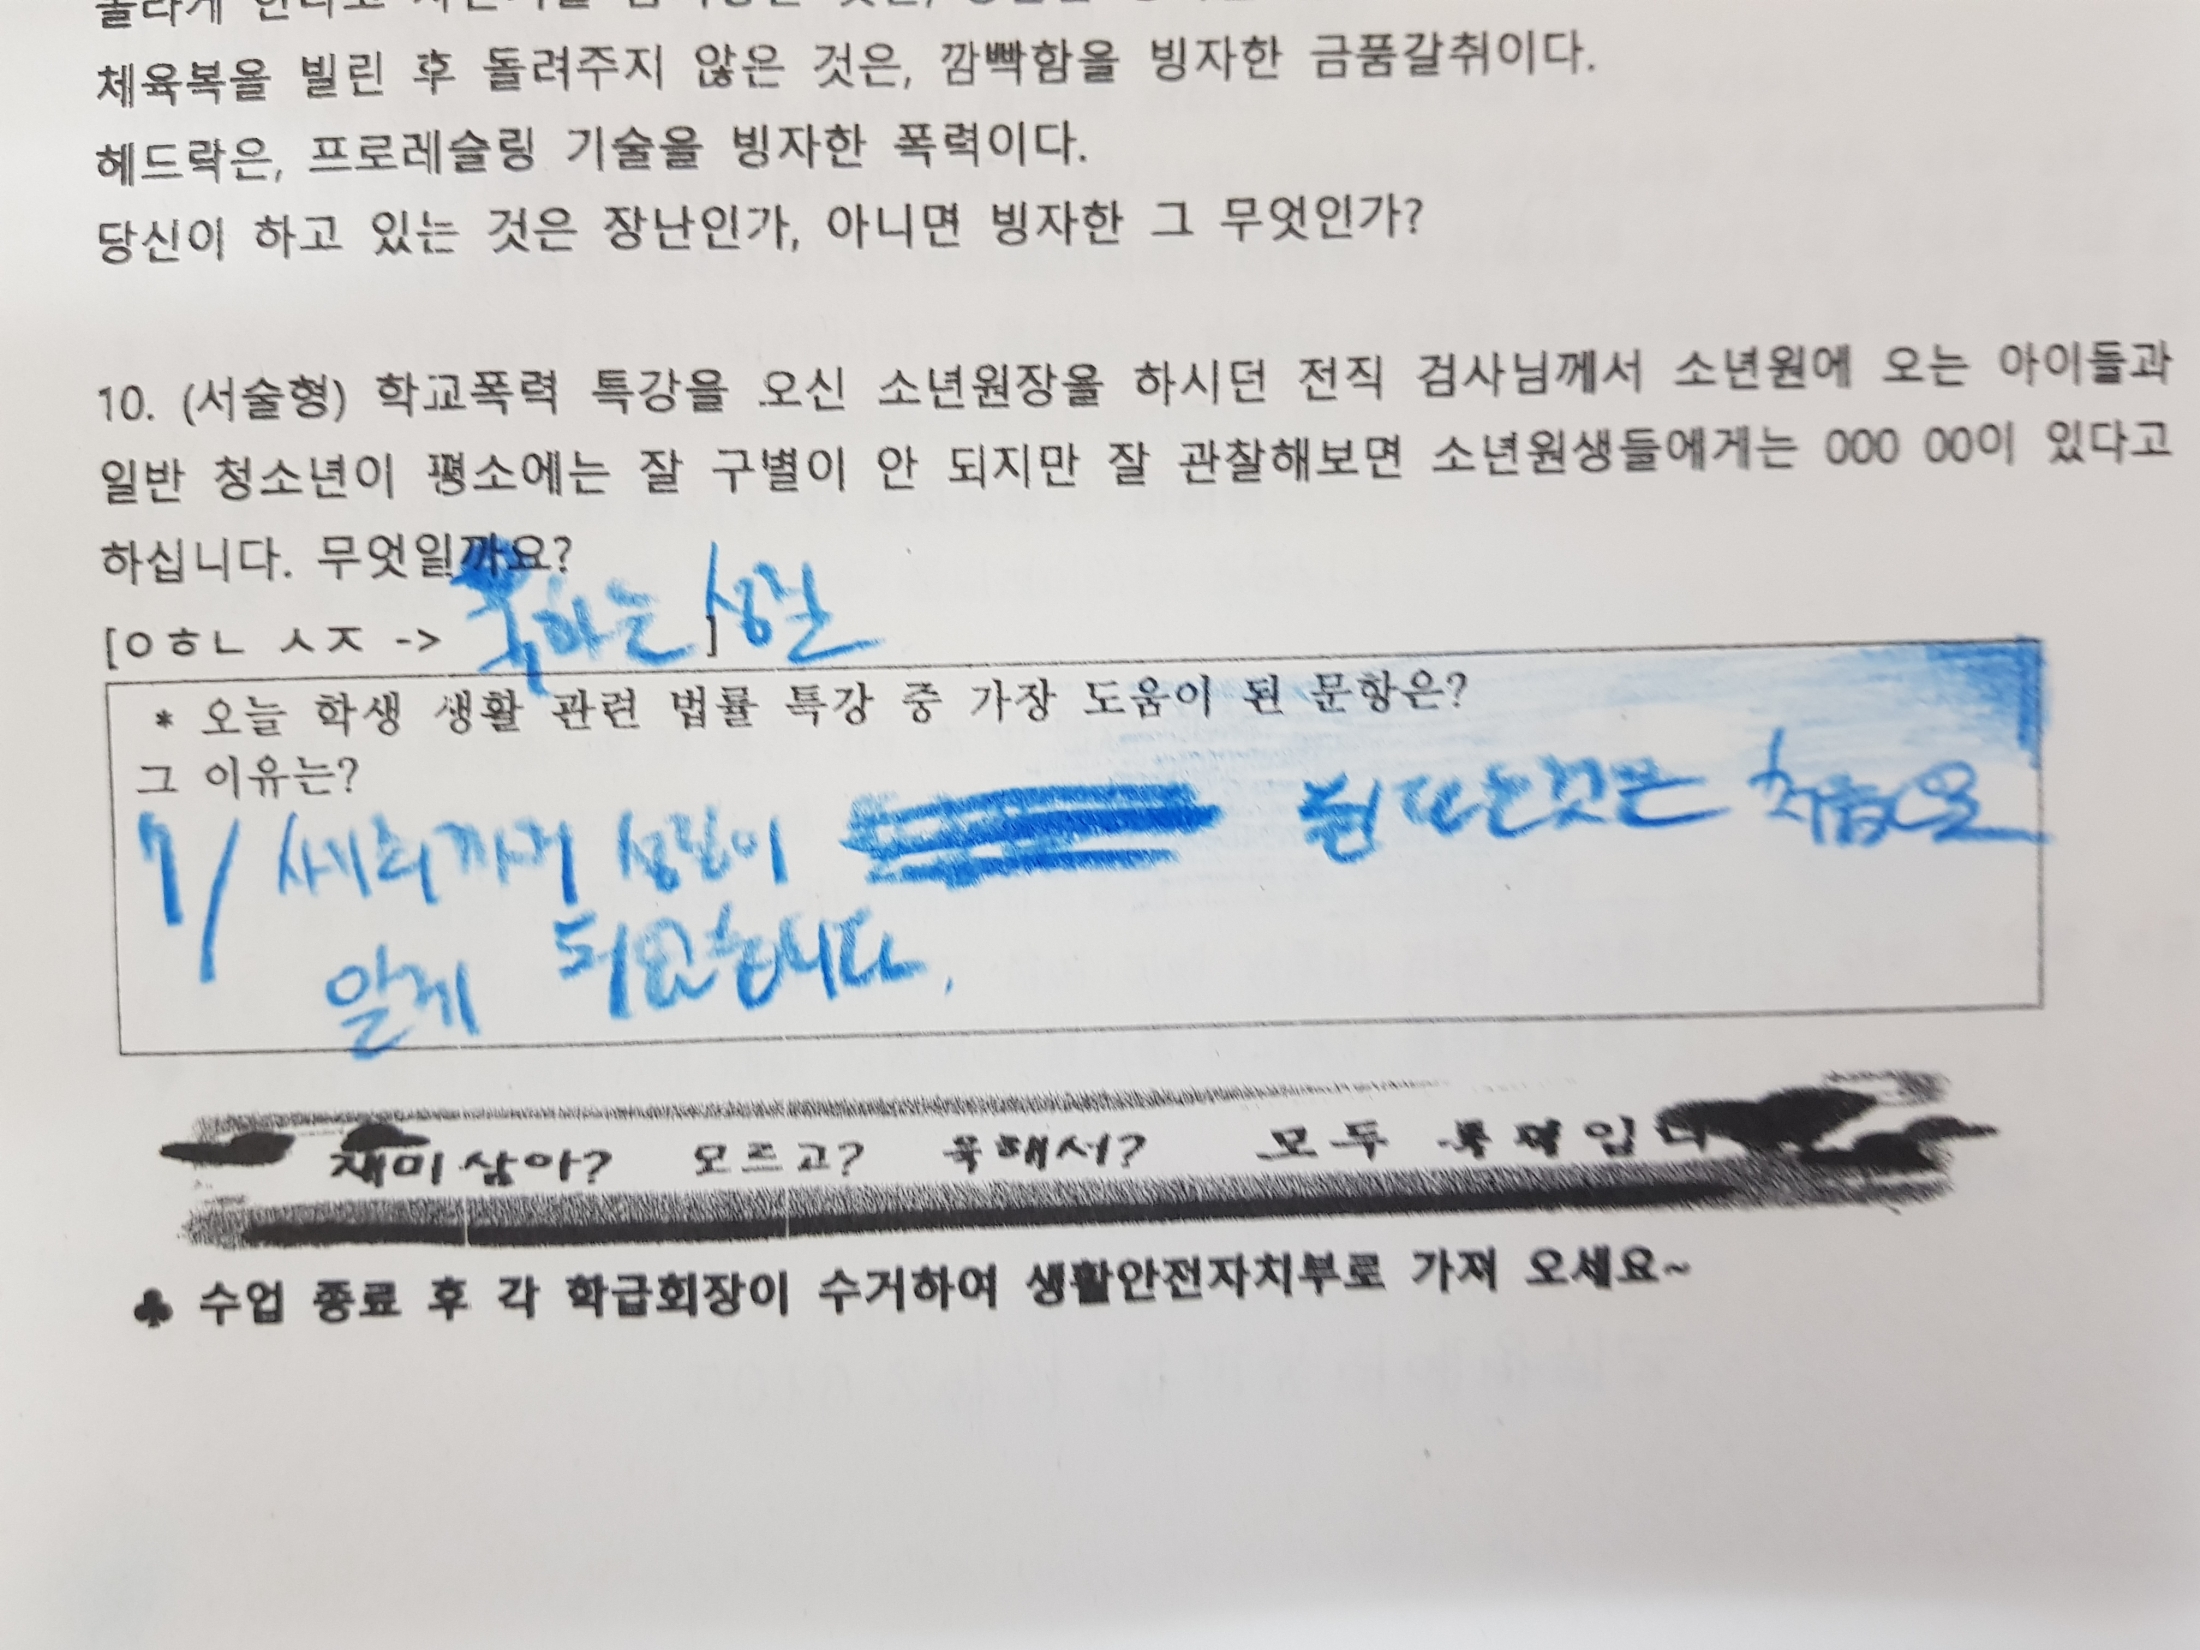 체육복을 빌린 후 돌려주지 않은 것은, 깜빡함을 빙자한 금품갈취이다.
헤드락은, 프로레슬링 기술을 빙자한 폭력이다.
당신이 하고 있는 것은 장난인가, 아니면 빙자한 그 무엇인가?
10. (서술형) 학교폭력 특강을 오신 소년원장을 하시던 전직 검사님께서 소년원에 오는 아이들과
일반 청소년이 평소에는 잘 구별이 안 되지만 잘 관찰해보면 소년원생들에게는 000 00이 있다고
하십니다. 무엇일까요?
[ㅇㅎㄴ ㅅㅈ -> 욱하는 ] 성질
* 오늘 학생 생활 관련 법률 특강 중 가장 도움이 된 문항은?
그 이유는?
성립이 된다는것은 처음으로
알게 되었습니다.
재미삼아? 모르고? 욱해서? 모두 폭력입니
♣ 수업 종료 후 각 학급회장이 수거하여 생활안전자치부로 가져 오세요~